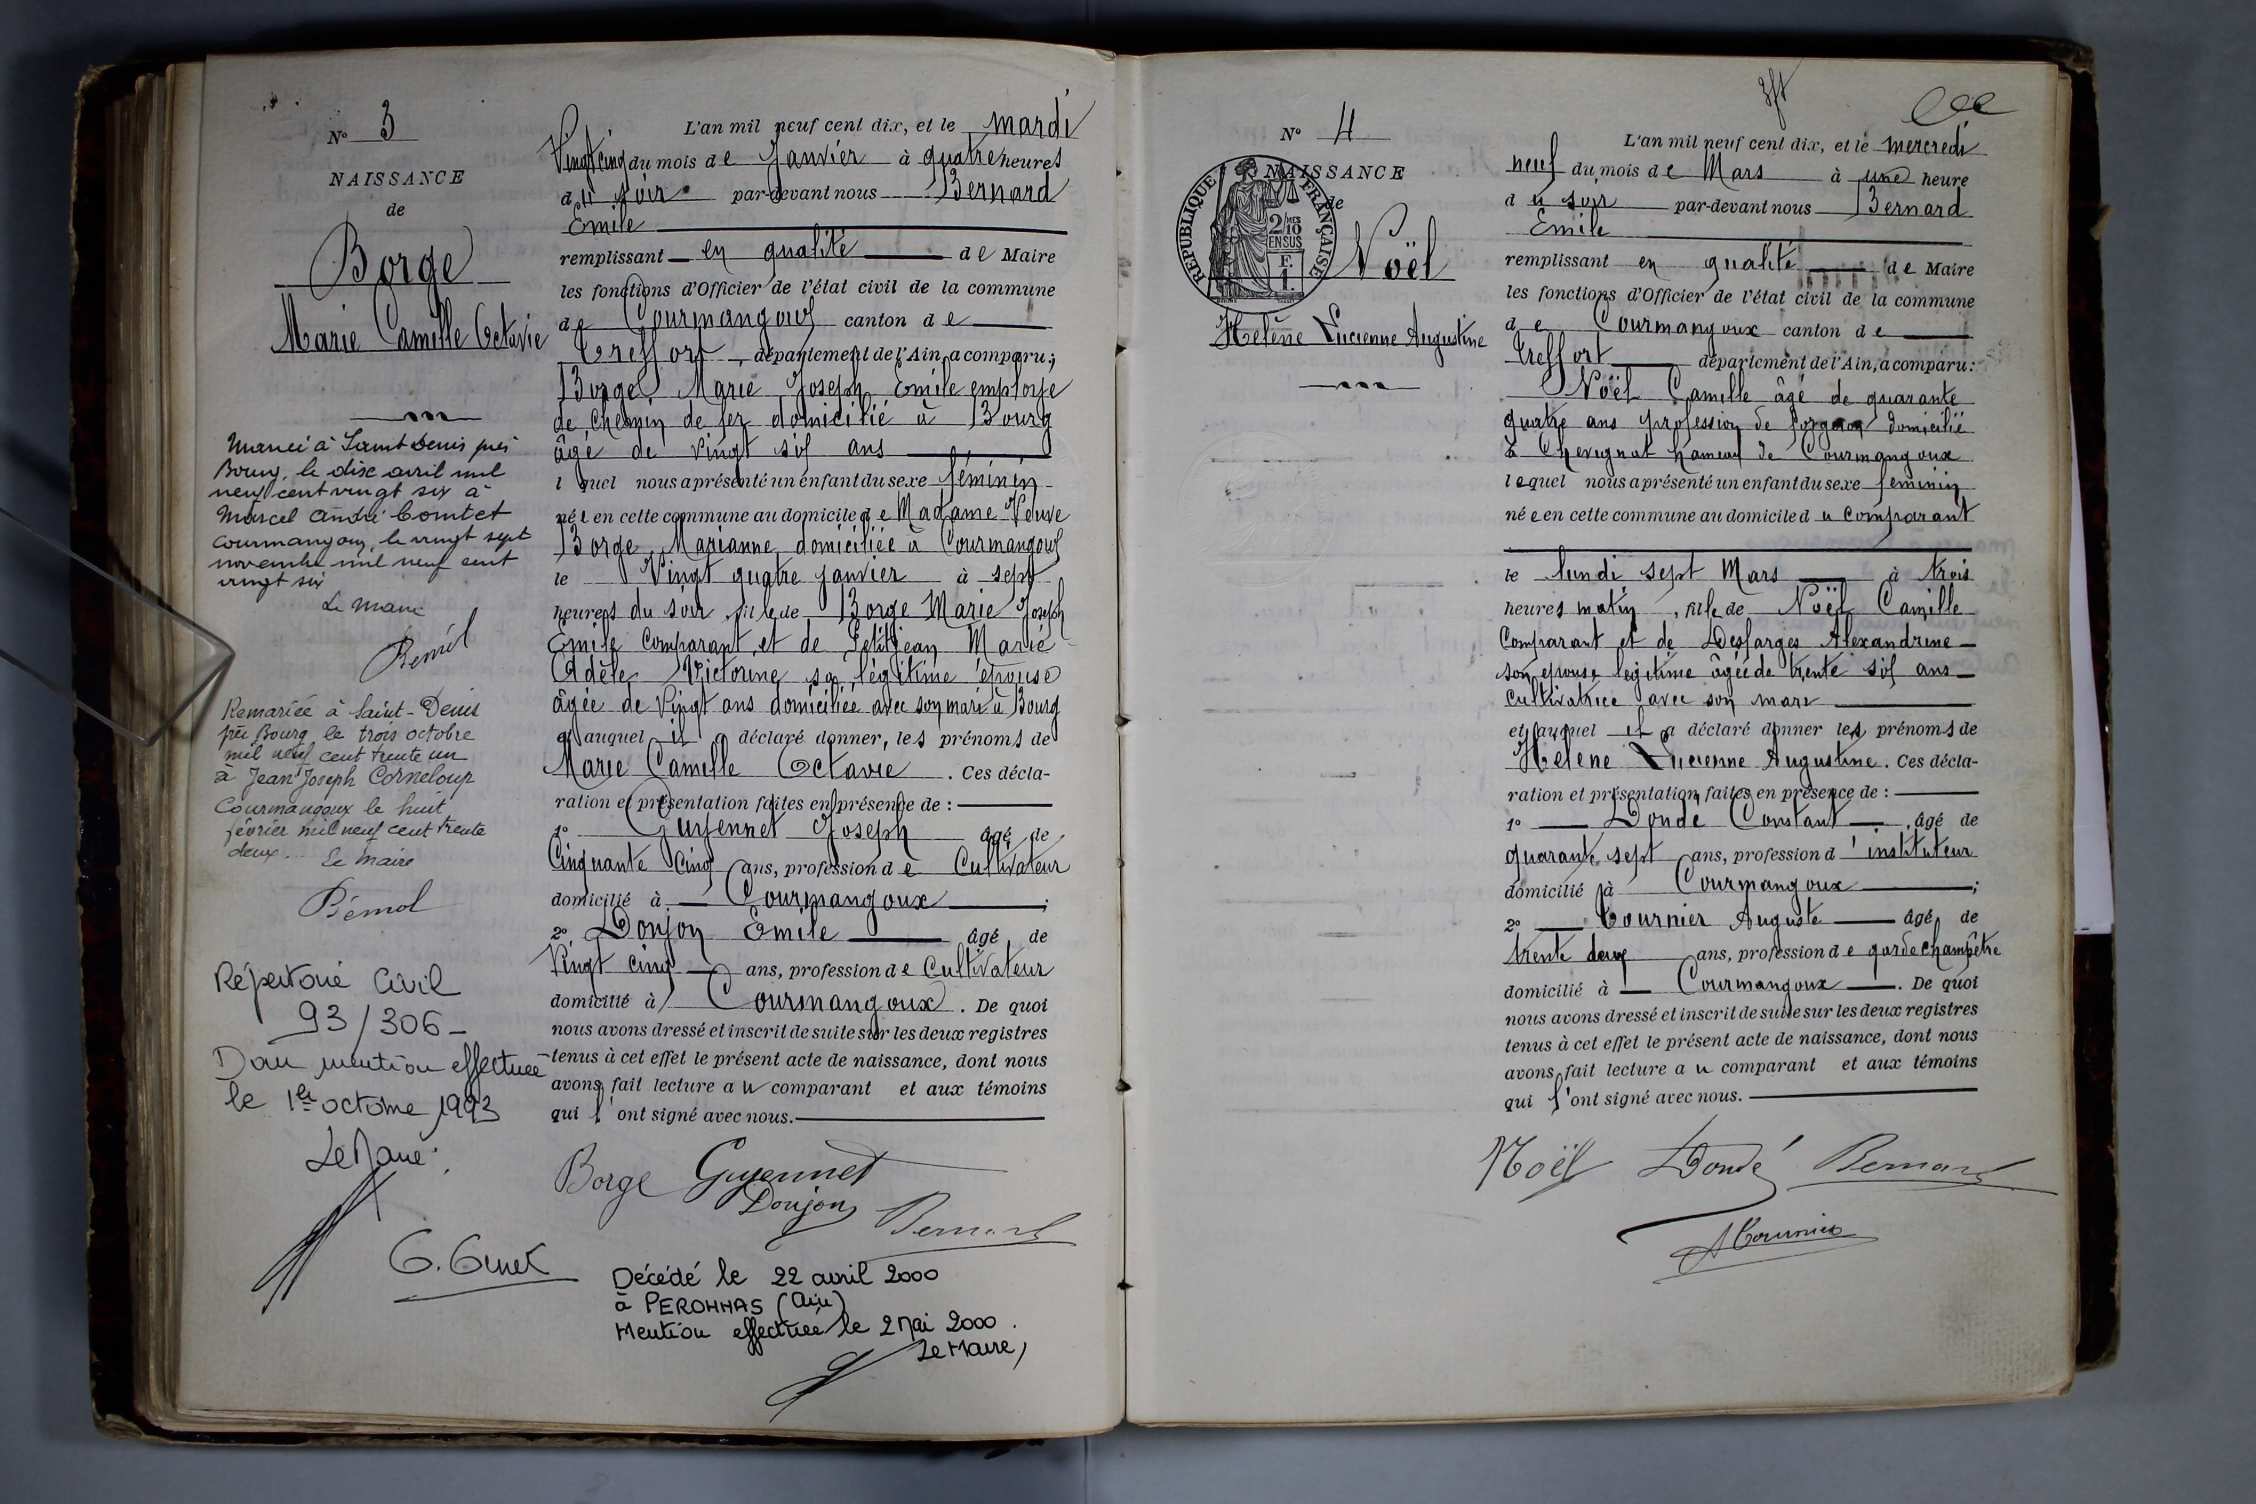 N° 3
NAISSANCE
de
Borge
Marie Camille Octavie
Mariée à Saint Denis près
Bourg, le dix avril mil
neuf cent vingt six à
Marcel André Comtet
Courmangoux, le vingt sept
novembre mil neuf cent
vingt six
Le Maire
Remariée à Saint-Denis
près Bourg le trois octobre
mil neuf cent trente un
à Jean Joseph Corneloup
Courmangoux le huit
février mil neuf cent trente
deux. Le Maire
Répertoire Civil
93/306-
Dont mention effectuée
le 1er octobre 1993
Le Maire
L'an mil neuf cent dix, et le mardi
Vingt cinq du mois de Janvier à quatre heures
du soir par-devant nous Bernard
Emile
remplissant en qualité de Maire
les fonctions d'Officier de l'état civil de la commune
de Courmangoux canton de
Treffort département de l'Ain, a comparu;
Borge Marie Joseph Emile employé
de chemin de fer domicilié à Bourg
âgé de vingt six ans
lequel nous a présenté un enfant du sexe féminin
née en cette commune au domicile de Madame Veuve
Borge Marianne domiciliée à Courmangoux
le Vingt quatre janvier à sept
heures du soir, fille de Borge Marie Joseph
Emile comparant et de Petitjean Marie
Adèle Victorine sa légitime épouse
âgée de vingt ans domiciliée avec son mari à Bourg
et auquel il a déclaré donner, les prénoms de
Marie Camille Octavie. Ces décla-
ration et présentation faites en présence de :
1° Guyennet Joseph âgé de
Cinquante cinq ans, profession de Cultivateur
domicilié à Courmangoux;
2° Donjon Emile âgé de
Vingt cinq ans, profession de Cultivateur
domicilié à Courmangoux. De quoi
nous avons dressé et inscrit de suite sur les deux registres
tenus à cet effet le présent acte de naissance, dont nous
avons fait lecture au comparant et aux témoins
qui l'ont signé avec nous.
Borge Guyennet
Donjon Bernard
Décédé le 22 avril 2000
à PERONNAS (Ain)
Mention effectuée le 2 Mai 2000.
Le Maire,
N° 4
NAISSANCE
de
RÉPUBLIQUE FRANÇAISE
2/10 MES
EN SUS
F.
1.
Noël
Helène Lucienne Augustine
L'an mil neuf cent dix, et le mercredi
neuf du mois de Mars à une heure
du soir par-devant nous Bernard
Emile
remplissant en qualité de Maire
les fonctions d'Officier de l'état civil de la commune
de Courmangoux canton de
Treffort département de l'Ain, a comparu:
Noël Camille âgé de quarante
quatre ans profession de forgeron domicilié
à Chevignat hameau de Courmangoux
lequel nous a présenté un enfant du sexe feminin
née en cette commune au domicile du comparant
le lundi sept Mars à trois
heures matin, fille de Noël Camille
Comparant et de Desfarges Alexandrine
son epouse legitime âgée de trente six ans
cultivatrice avec son mari
et auquel il a déclaré donner les prénoms de
Helene Lucienne Augustine. Ces décla-
ration et présentation faites en présence de :
1° Dondé Constant, âgé de
quarante sept ans, profession d'instituteur
domicilié à Courmangoux;
2° Cournier Auguste âgé de
trente deux ans, profession de garde champêtre
domicilié à Courmangoux. De quoi
nous avons dressé et inscrit de suite sur les deux registres
tenus à cet effet le présent acte de naissance, dont nous
avons fait lecture au comparant et aux témoins
qui l'ont signé avec nous.
Noël Dondé Bernard